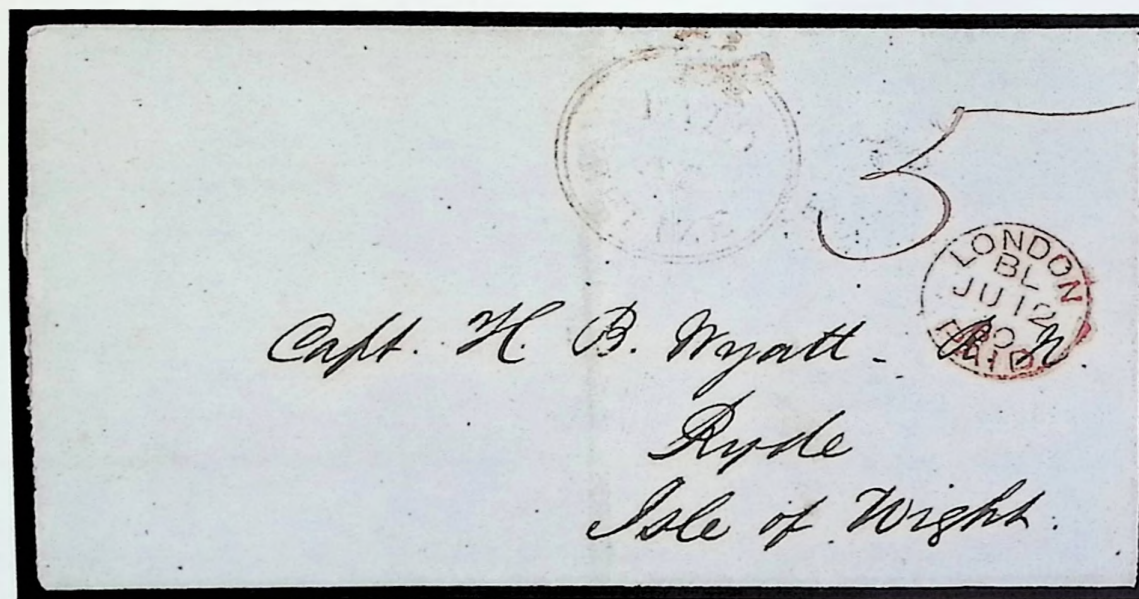 5
LONDON
BL
JU 12
PAID
Capt. H. B. Wyatt - R.N
Ryde
Isle of Wight.